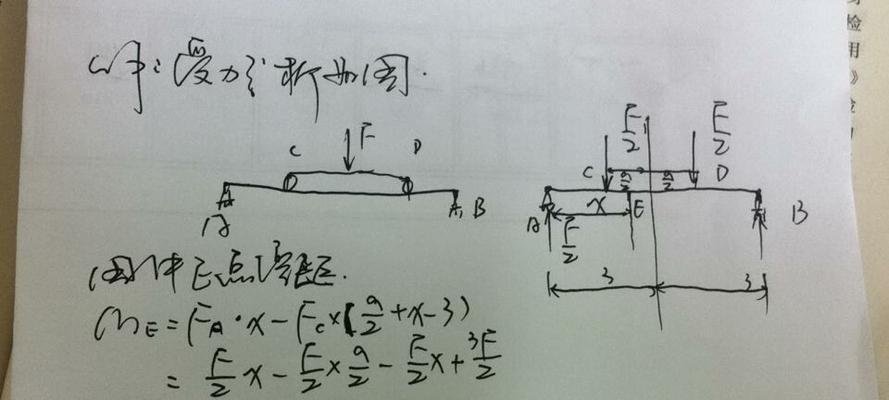 解：受力分析如图.
C F D
A B
F/2 F/2
C a/2 a/2 D
A x E B
F/2
3 3
图中E点弯距.
M_E = F_A · x - F_C × (a/2 + x - 3)
= F/2 x - F/2 × a/2 - F/2 x + 3F/2